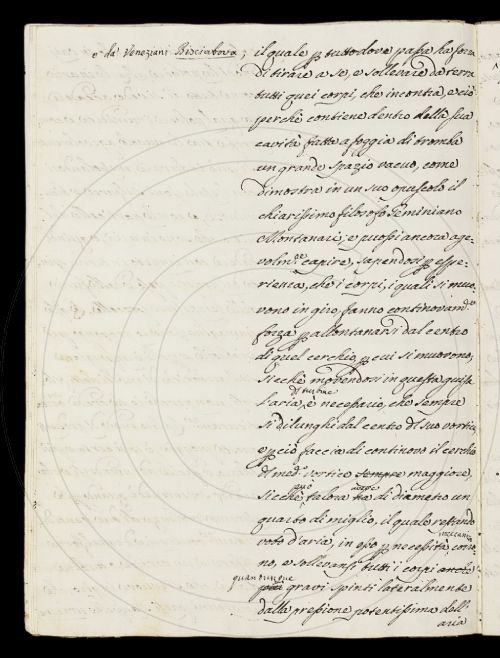 e da' Veneziani Bisciabova;
il quale ꝑ tutto dove passa ha forza
di tirare a se, e sollevare da terra
tutti quei corpi, che incontra, e ciò
perchè contiene dentro della sua
cavità fatta a foggia di tromba
un grande spazio vacuo, come
dimostra in un suo opuscolo il
chiarissimo filosofo Geminiano
Montanari; e puossi ancora age-
volm.te capire, sapendosi ꝑ espe-
rienza, che i corpi, i quali si muo-
vono in giro, fanno continovam.te
forza ꝑ allontanarsi dal centro
di quel cerchio, ꝑ cui si muovono;
sicchè movendosi in questa guisa
l'aria, è necessario, che sempre
si dilunghi dal centro del suo vortice
e ꝑciò faccia di continovo il cerchio
del med.o vortice sempre maggiore,
sicchè talora ha di diametro un
quarto di miglio, il quale restando
voto d'aria, in esso ꝑ necessità
no, e sollevansi tutti i corpi
quantunque
gravi spinti lateralmente
dalla pressione potentissima dell'
aria